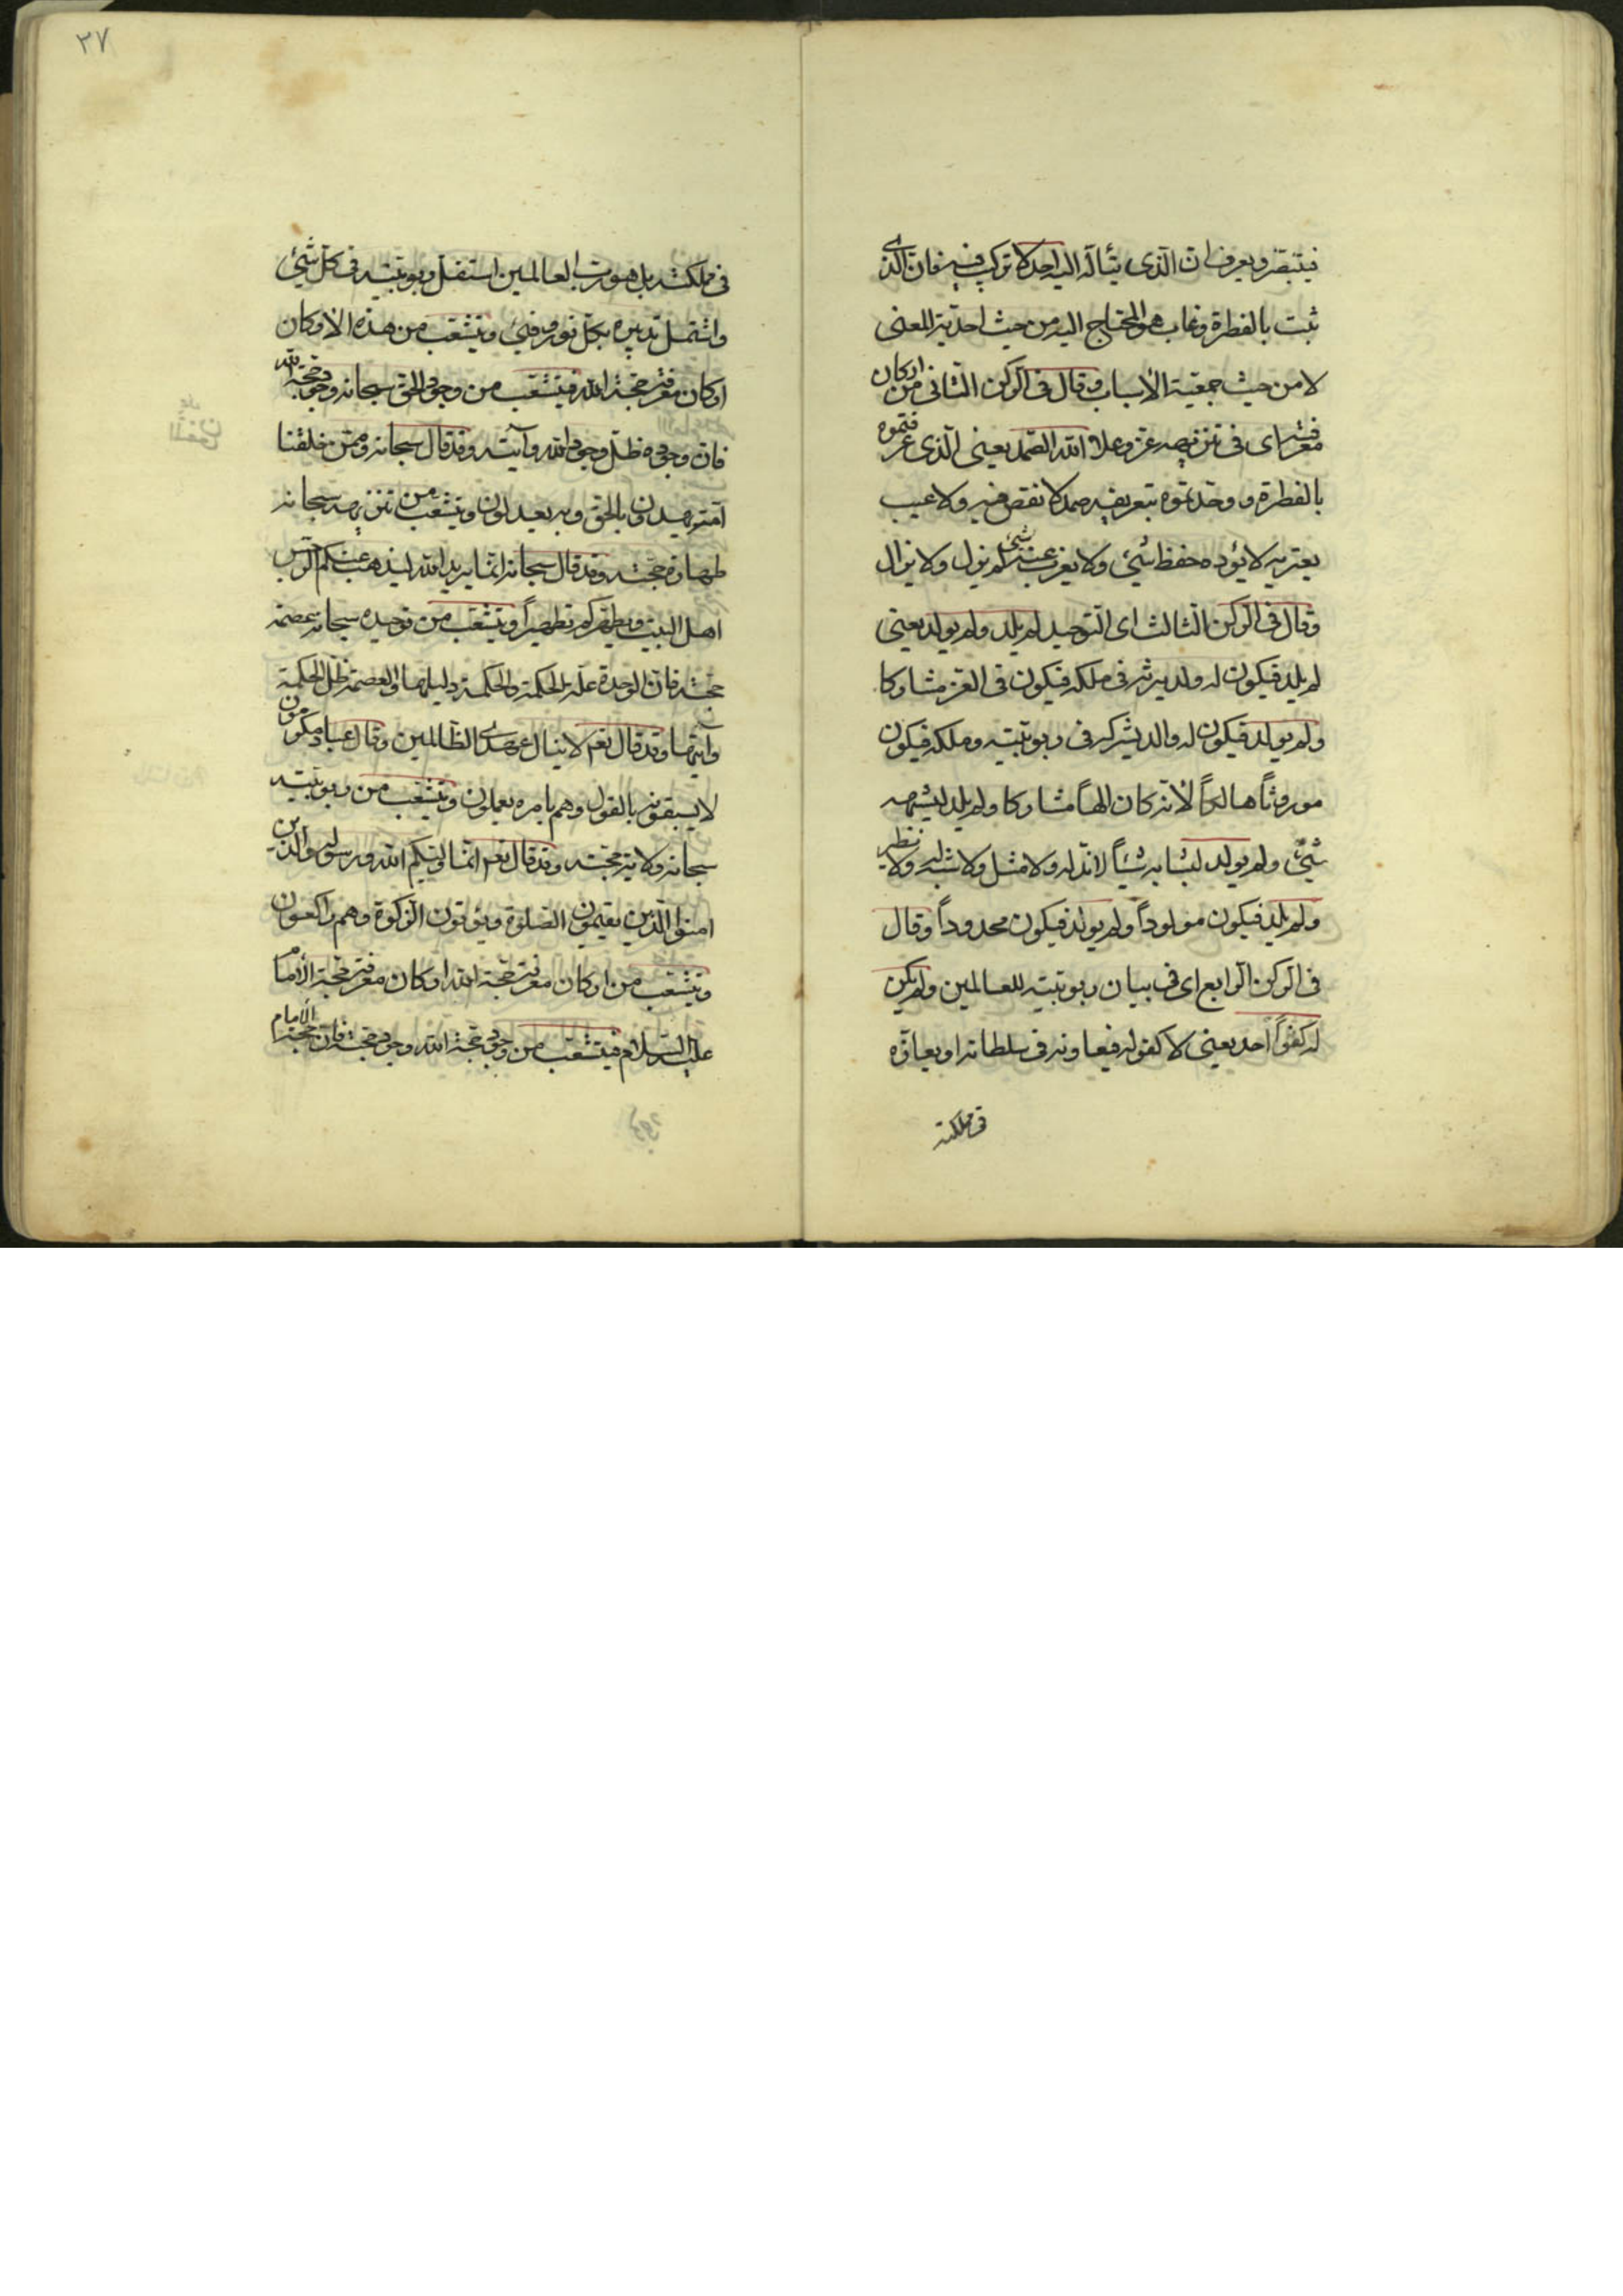 فيتبصر ويعرف ان الذى يتأله اليه احد لا تركيب فيه فان الذى
ثبت بالفطرة وغاب هو المحتاج اليه من حيث احدية المعنى
لا من حيث جمعية الأسباب وقال فى الركن الثانى من اركان
معرفته اى فى تنزيهه عز وعلا الله الصمد يعنى الذى عرفتموه
بالفطرة ووحدتموه بتعريفه صمد لا نقص فيه ولا عيب
يعتريه لا يؤده حفظ شئ ولا يعزب عنه شئ لم يزل ولا يزال
وقال فى الركن الثالث اى التوحيد لم يلد ولم يولد يعنى
لم يلد فيكون له ولد يرثه فى ملكه فيكون فى العز مشاركا
ولم يولد فيكون له والد يشركه فى ربوبيته وملكه فيكون
موروثاً هالكاً لأنه كان الهاً مشاركا ولم يلد ليشبهه
شئ ولم يولد ليشابه شيئاً لا ند له ولا مثل ولا شبه له ولا نظير
ولم يلد فيكون مولوداً ولم يولد فيكون محدوداً وقال
فى الركن الرابع اى فى بيان ربوبيته للعالمين ولم يكن
له كفواً احد يعنى لا كفو له فيعاونه فى سلطانه او يعازه
فى مملكته
٣٧
فى مملكته بل هو رب العالمين استقل ربوبيته فى كل شئ
واشتمل تدبيره بكل نور وفئ ويتشعب من هذه الأركان
اركان معرفة حجة الله فيتشعب من وجود الحق سبحانه وجود حجة الله
فان وجوده ظل وجود الله وآيته وقد قال سبحانه وممن خلقنا
امة يهدون بالحق وبه يعدلون ويتشعب من تنزيهه سبحانه
طهارة حجته وقد قال سبحانه انما يريد الله ليذهب عنكم الرجس
اهل البيت ويطهركم تطهيراً ويتشعب من توحيده سبحانه عصمة
حجته فان الوحدة علة الحكمة والحكمة دليلها والعصمة ظل الحكمة
وآيتها وقد قال تعم لا ينال عهدى الظالمين وقال عباد مكرمون
لا يسبقونه بالقول وهم بامره يعملون ويتشعب من ربوبيته
سبحانه ولاية حجته وقد قال تعم انما وليكم الله ورسوله والذين
امنوا الذين يقيمون الصلوة ويؤتون الزكوة وهم راكعون
ويتشعب من اركان معرفة حجة الله اركان معرفة حجة الأمام
عليه السلام فيتشعب من وجود حجة الله وجود حجته فان حجة الأمام